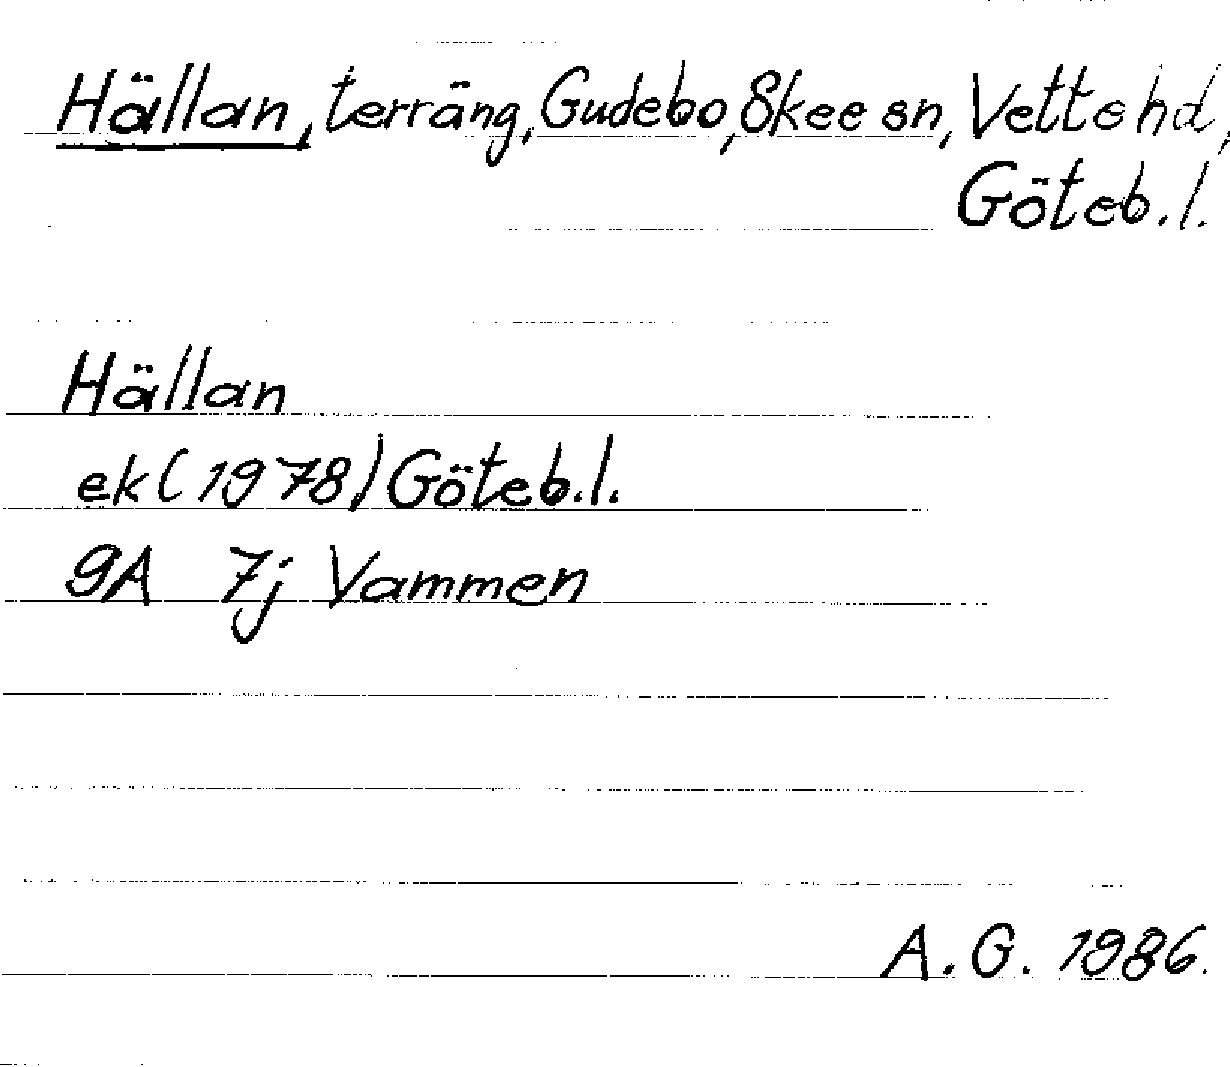 Hällan, terräng, Gudebo, Skee sn, Vette hd,
Göteb. l.
Hällan
ek (1978) Göteb. l.
9A 7j Vammen
A. G. 1986.